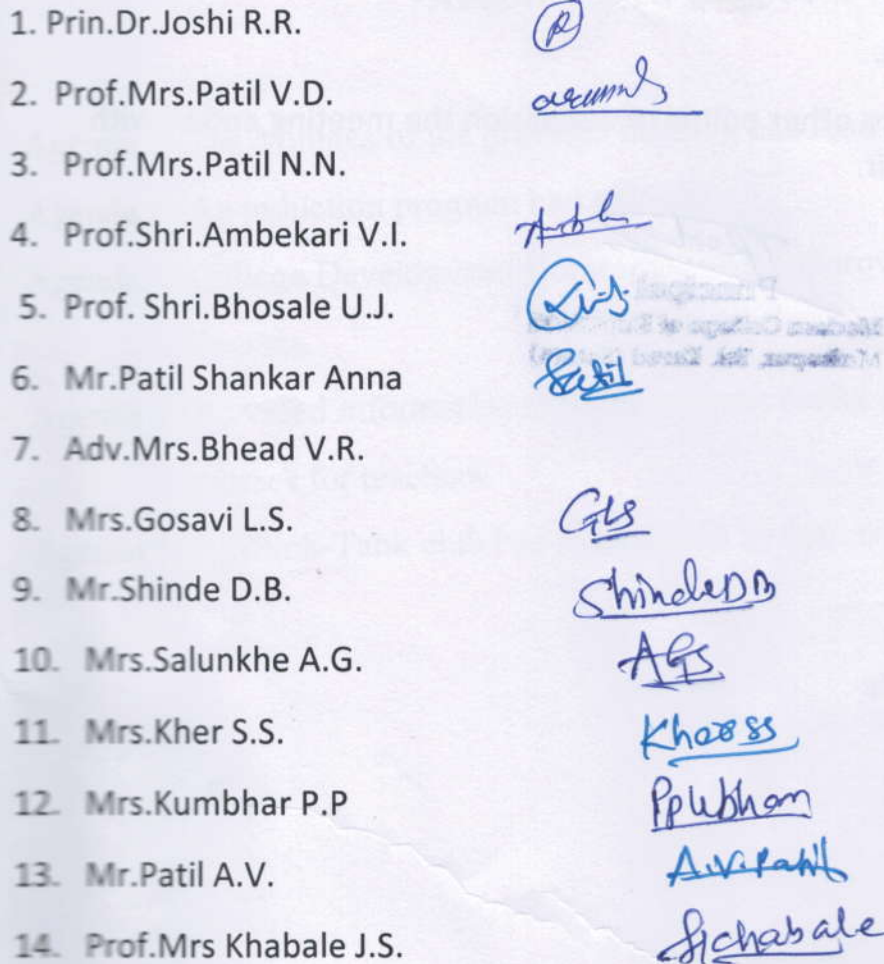 1. Prin.Dr.Joshi R.R.
2. Prof.Mrs.Patil V.D.
3. Prof.Mrs.Patil N.N.
4. Prof.Shri.Ambekari V.I.
5. Prof. Shri.Bhosale U.J.
6. Mr.Patil Shankar Anna
7. Adv.Mrs.Bhead V.R.
8. Mrs.Gosavi L.S. GLS
9. Mr.Shinde D.B. Shinde DB
10. Mrs.Salunkhe A.G. AGS
11. Mrs.Kher S.S. Kher SS
12. Mrs.Kumbhar P.P
13. Mr.Patil A.V. A.V.Patil
14. Prof.Mrs Khabale J.S.